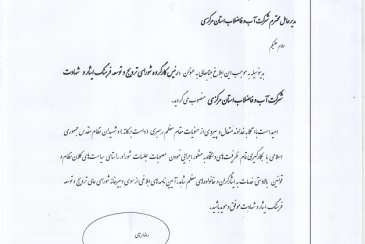 مدیرعامل محترم شرکت آب و فاضلاب استان مرکزی
سلام علیکم
بدینوسیله به موجب این ابلاغ جنابعالی به عنوان رئیس کارگروه شورای ترویج و توسعه فرهنگ ایثار و شهادت
شرکت آب و فاضلاب استان مرکزی منصوب می گردید.
امید است با اتکا به خداوند متعال و پیروی از منویات مقام معظم رهبری و شهیدان نظام مقدس جمهوری
اسلامی با بکارگیری تمام ظرفیت های دستگاه به منظور اجرایی نمودن مصوبات جلسات شورا در راستای سیاست های کلان نظام و
قوانین بالادستی خدمات به ایثارگران و خانواده های معظم شاهد، آیین نامه های ابلاغی از سوی دبیرخانه شورای عالی ترویج و توسعه
فرهنگ ایثار و شهادت موفق و موید باشید.